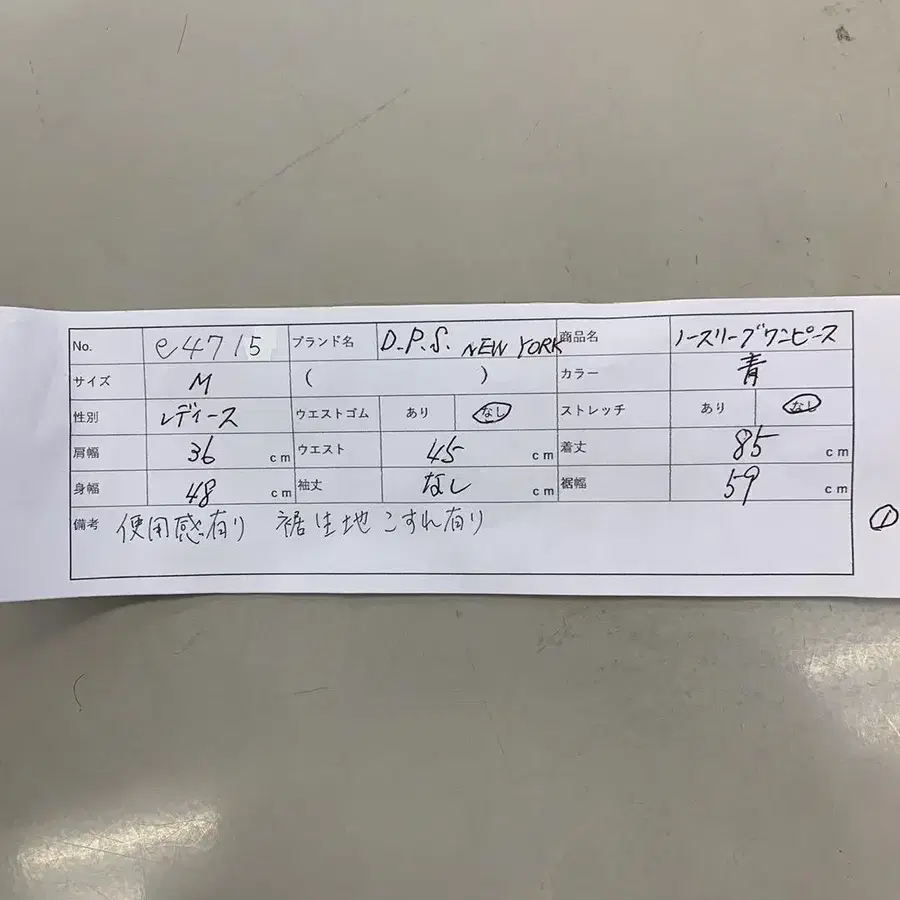 No. e4715 ブランド名 D.P.S. NEW YORK 商品名 ノースリーブワンピース
サイズ M ( ) カラー 青
性別 レディース ウエストゴム あり なし ストレッチ あり なし
肩幅 36 cm ウエスト 45 cm 着丈 85 cm
身幅 48 cm 袖丈 なし cm 裾幅 59 cm
備考 使用感有り 裾生地こすれ有り
①